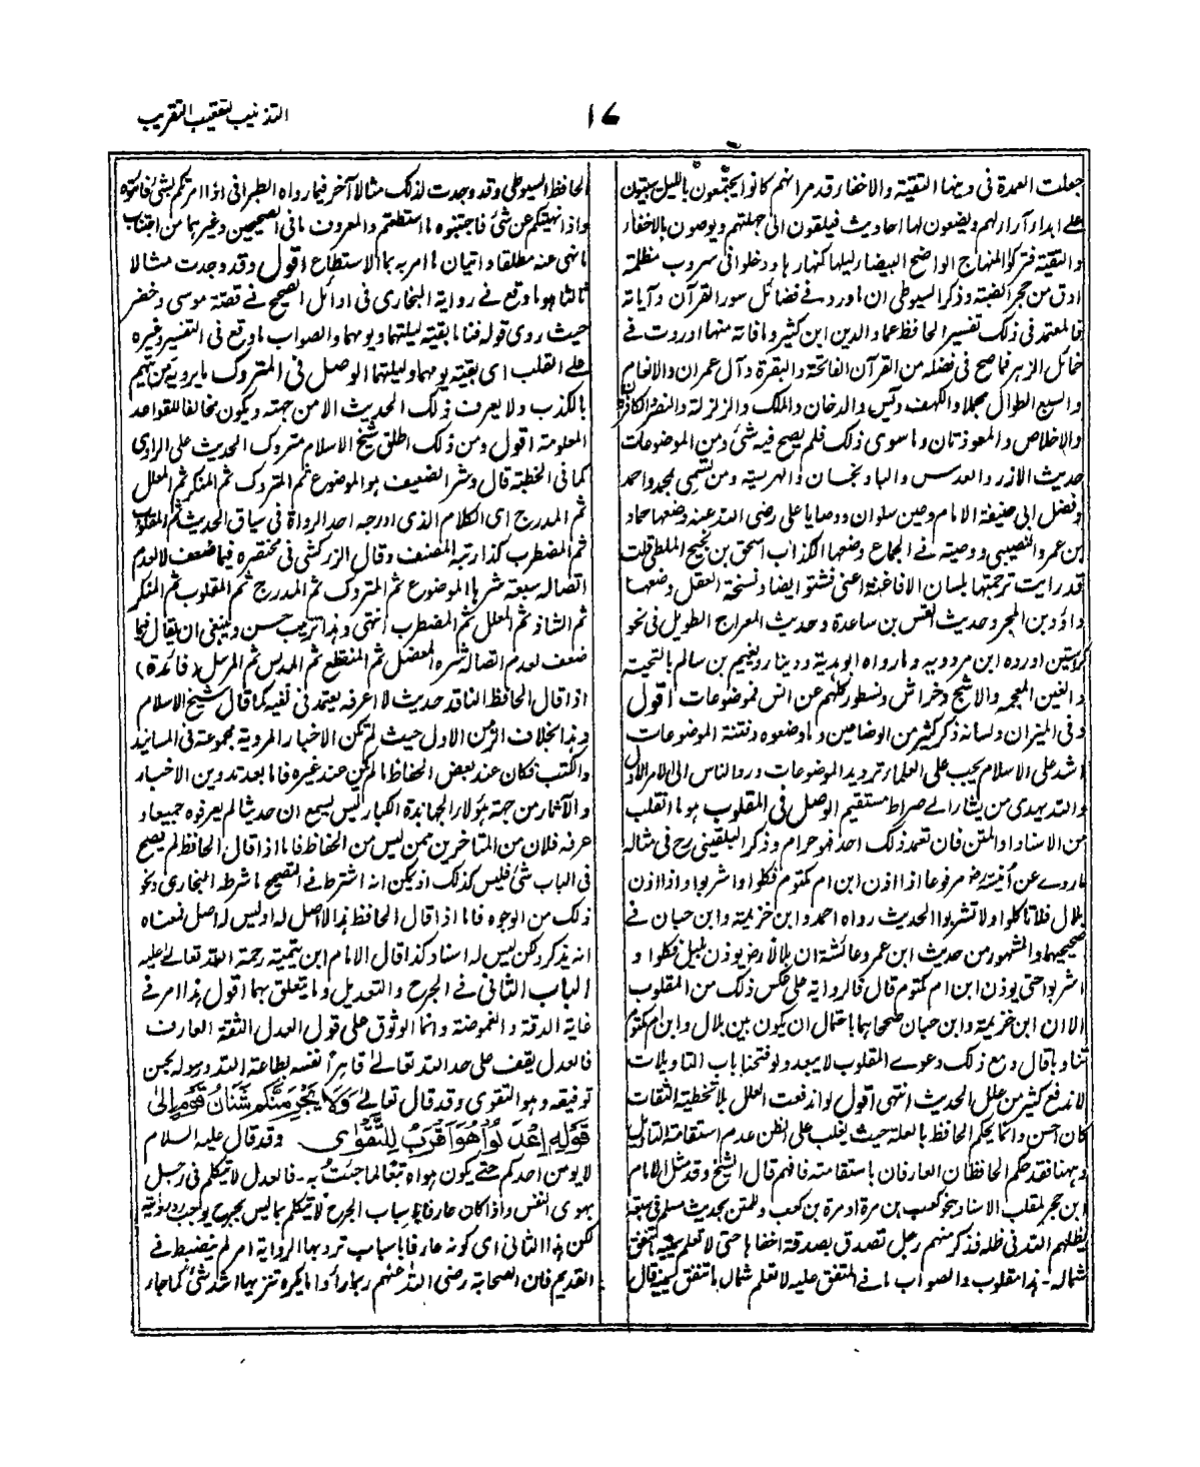 التذنيب لتعقيب التقريب
١٦
جعلت العمدة فى دينها التقية والاخفار قد مر انهم كانوا يجتمعون بالليل يبيتون
على ابداء آرارهم ويضعون لها احاديث فيلقون الى جهلتهم ويوصون بالاخفار
والتقية فتركوا المنهاج الواضح البيضاء ليلها كنهارها ودخلوا فى سروب مظلمة
ادق من حجر الضبة وذكر السيوطى ان ماورد فى فضائل سور القرآن وآياته
فالمعتمد فى ذلك تفسير الحافظ عماد الدين ابن كثير وما فاته منها اوردت فى
خمائل الزهر فما صح فى فضله من القرآن الفاتحة والبقرة وآل عمران والانعام
والسبع الطوال مجملا والكهف ويس والدخان والملك والزلزلة والنصر والكافرون
والاخلاص والمعوذتان وما سوى ذلك فلم يصح فيه شئ ومن الموضوعات
حديث الارز والعدس والباذنجان والهريسة ومن تسمى بمحمد واحمد
وفضل ابى حنيفة الامام وعين سلوان ووصايا على رضى الله عنه وضعها حماد
ابن عمرو النصيبى ووصيته فى الجماع وضعها الكذاب اسحق بن نجيح الملطى قلت
قد رايت ترجمتها بلسان الافاغنة اعنى پشتو ايضا ونسخة العقل وضعها
داؤد بن المجر وحديث القس بن ساعدة وحديث المعراج الطويل فى نحو
كراستين اورده ابن مردويه وما رواه ابو هدبة ودينار ونعيم بن سالم بالتحتية
والغين المعجمه والاشج وخراش ونسطور كلهم عن انس فموضوعات اقول
وفى الميزان ولسانه ذكر كثير من الوضاعين وما وضعوه وفتنة الموضوعات
اشد على الاسلام يجب على العلماء ترديد الموضوعات ورد الناس الى الامر الاول
والله يهدى من يشاء الى صراط مستقيم الوصل فى المقلوب هو ما انقلب
من الاسناد او المتن فان تعمد ذلك احد فهو حرام وذكر البلقينى رح فى مثاله
ما روى عن أنيسة رض مرفوعا اذا اذن ابن ام مكتوم فكلوا واشربوا واذا اذن
بلال فلا تاكلوا ولا تشربوا الحديث رواه احمد وابن خزيمة وابن حبان فى
صحيحيهما والمشهور من حديث ابن عمر وعائشة ان بلالا رض يوذن بليل فكلوا و
اشربوا حتى يوذن ابن ام مكتوم قال فالرواية على عكس ذلك من المقلوب
الا ان ابن خزيمة وابن حبان صححاها باحتمال ان يكون بين بلال وابن ام مكتوم
تناوبا قال ومع ذلك ودعوى المقلوب لا يبعد ولو فتحنا باب التاويلات
لاندفع كثير من علل الحديث انتهى اقول لو اندفعت العلل بلا تخطية الثقات
كان احسن وانما يحكم الحافظ بالعلة حيث يغلب على الظن عدم استقامة التاويل
وههنا فقد حكم الحافظان العارفان باستقامته فافهم قال الشيخ وقد مثل الامام
ابن حجر لمقلب الاسناد بنحو كعب بن مرة او مرة بن كعب وللمتن بحديث مسلم فى سبعة
يظلهم الله فى ظله فذكر منهم رجل تصدق بصدقة اخفاها حتى لا تعلم يمينه ما تنفق
شماله - فهذا مقلوب والصواب ما فى المتفق عليه لا تعلم شماله ما تنفق يمينه قال
الحافظ السيوطى وقد وجدت لذلك مثالا آخر فيما رواه الطبرانى اذا امرتكم بشئ فاتوه
واذا نهيتكم عن شئ فاجتنبوه ما استطعتم والمعروف ما فى الصحيحين وغيرهما من اجتناب
ما نهى عنه مطلقا واتيان ما امر به بما الاستطاع اقول وقد وجدت مثالا
ثالثا هو ما وقع فى رواية البخارى فى اوائل الصحيح فى قصة موسى وخضر
حيث روى قوله فمنا بقية ليلتهما ويومهما والصواب ما وقع فى التفسير وغيره
على القلب اى بقية يومهما وليلتهما الوصل فى المتروك ما يرويه من يتهم
بالكذب ولا يعرف ذلك الحديث الا من جهته ويكون مخالفا للقواعد
المعلومة اقول ومن ذلك اطلق شيخ الاسلام متروك الحديث على الراوى
كما فى الخطبة قال وشر الضعيف هو الموضوع ثم المتروك ثم المنكر ثم المعلل
ثم المدرج اى الكلام الذى ادرجه احد الرواة فى سياق الحديث ثم المقلوب
ثم المضطرب كذا رتبه المصنف وقال الزركشى فى مختصره فيما ضعف لا لعدم
اتصاله سبعة شرها الموضوع ثم المتروك ثم المدرج ثم المقلوب ثم المنكر
ثم الشاذ ثم المعلل ثم المضطرب انتهى وهذا ترتيب حسن وينبغى ان يقال فيما
ضعف لعدم اتصاله شره المعضل ثم المنقطع ثم المدلس ثم المرسل (فائدة)
اذا قال الحافظ الناقد حديث لا اعرفه يعتمد فى نفيه كما قال شيخ الاسلام
وهذا بخلاف الزمن الاول حيث لم تكن الاخبار المروية مجموعة فى المسانيد
والكتب فكان عند بعض الحفاظ ما لم يكن عند غيره فاما بعد تدوين الاخبار
والآثار من جهة هؤلاء الجهابذة الكبار ليس يسمع ان حديثا لم يعرفوه جميعا و
عرفه فلان من المتاخرين ممن ليس من الحفاظ فاما اذا قال الحافظ لم يصح
فى الباب شئ فليس كذلك اذ يمكن انه اشترط فى التصحيح ما شرطه البخارى ونحو
ذلك من الوجوه فاما اذا قال الحافظ هذا لا اصل له او ليس له اصل فمعناه
انه يذكر ولكن ليس له اسناد كذا قال الامام ابن تيمية رحمة الله تعالى عليه
الباب الثانى فى الجرح والتعديل وما يتعلق بهما اقول هذا امر فى
غاية الدقة والغموضة وانما الوثوق على قول العدل الثقة العارف
فالعدل يقف على حد الله تعالى قاهراً نفسه بطاعة الله ورسوله بحسن
توفيقه وهو التقوى وقد قال تعالى وَلَا يَجْرِمَنَّكُمْ شَنَآنُ قَوْمٍ إلى
قَوْلِهِ اِعْدِلُوْا هُوَ اَقْرَبُ لِلتَّقْوٰى وقد قال عليه السلام
لا يومن احدكم حتى يكون هواه تبعًا لما جئت به - فالعدل لا يتكلم فى رجل
بهوى النفس واذا كان عارفا باسباب الجرح لا يتكلم بما ليس بجرح يوجب رد رواية
لكن هذا الثانى اى كونه عارفا باسباب ترد بها الرواية امر لم ينضبط فى
القديم فان الصحابة رضى الله عنهم ربما رأوا ما يكره تنزيها اشد شئ كما جاء